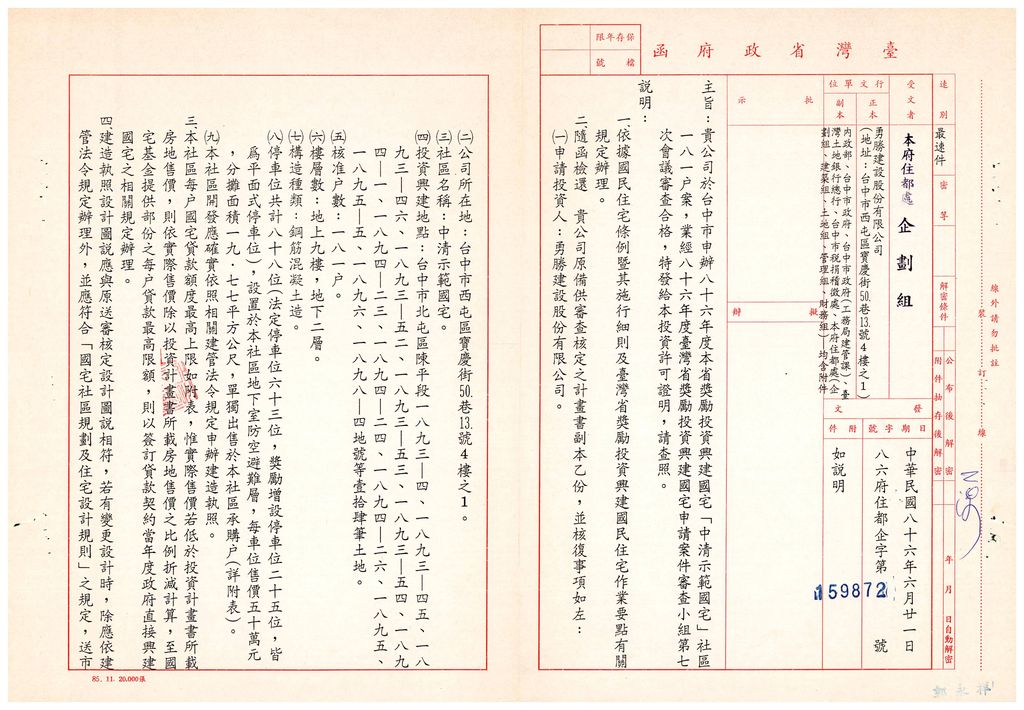 臺灣省政府函
保存年限
檔號
速別
最速件
密等
解密條件
公布後解密
附件抽存後解密
年 月 日自動解密
受文者
本府住都處企劃組
行文單位
正本
副本
勇勝建設股份有限公司
(地址:台中市西屯區寶慶街50.巷13.號4樓之1)
內政部、台中市政府、台中市政府(工務局建管課)、臺
灣土地銀行總行、台中市稅捐稽徵處、本府住都處(企
劃組、建築組、土地組、管理組、財務組)—均含附件
發文
日期
字號
附件
中華民國八十六年六月廿一日
八六府住都企字第159872號
如說明
批示
擬辦
主旨:貴公司於台中市申辦八十六年度本省獎勵投資興建國宅「中清示範國宅」社區
一八一户案,業經八十六年度臺灣省獎勵投資興建國宅申請案件審查小組第七
次會議審查合格,特發給本投資許可證明,請查照。
說明:
一依據國民住宅條例暨其施行細則及臺灣省獎勵投資興建國民住宅作業要點有關
規定辦理。
二隨函檢還 貴公司原備供審查核定之計畫書副本乙份,並核復事項如左:
㈠申請投資人:勇勝建設股份有限公司。
線外請勿批註
裝
訂
線
㈡公司所在地:台中市西屯區寶慶街50.巷13.號4樓之1。
㈢社區名稱:中清示範國宅。
㈣投資興建地點:台中市北屯區陳平段一八九三—四、一八九三—四五、一八
九三—四六、一八九三—五二、一八九三—五三、一八九三—五四、一八九
四—一、一八九四—二三、一八九四—二四、一八九四—二六、一八九五、
一八九五—五、一八九六、一八九八—四地號等壹拾肆筆土地。
㈤核准户數:一八一户。
㈥樓層數:地上九樓,地下二層。
㈦構造種類:鋼筋混凝土造。
㈧停車位共計八十八位(法定停車位六十三位,獎勵增設停車位二十五位,皆
為平面式停車位),設置於本社區地下室防空避難層,每車位售價五十萬元
,分攤面積一九.七七平方公尺,單獨出售於本社區承購户(詳附表)。
㈨本社區開發應確實依照相關建管法令規定申辦建造執照。
三本社區每户國宅貸款額度最高上限如附表,惟實際售價若低於投資計畫書所載
房地售價,則依實際售價除以投資計畫書所載房地售價之比例折減計算,至國
宅基金提供部份之每户貸款最高限額,則以簽訂貸款契約當年度政府直接興建
國宅之相關規定辦理。
四建造執照設計圖說應與原送審核定設計圖說相符,若有變更設計時,除應依建
管法令規定辦理外,並應符合「國宅社區規劃及住宅設計規則」之規定,送市
85.11.20,000張